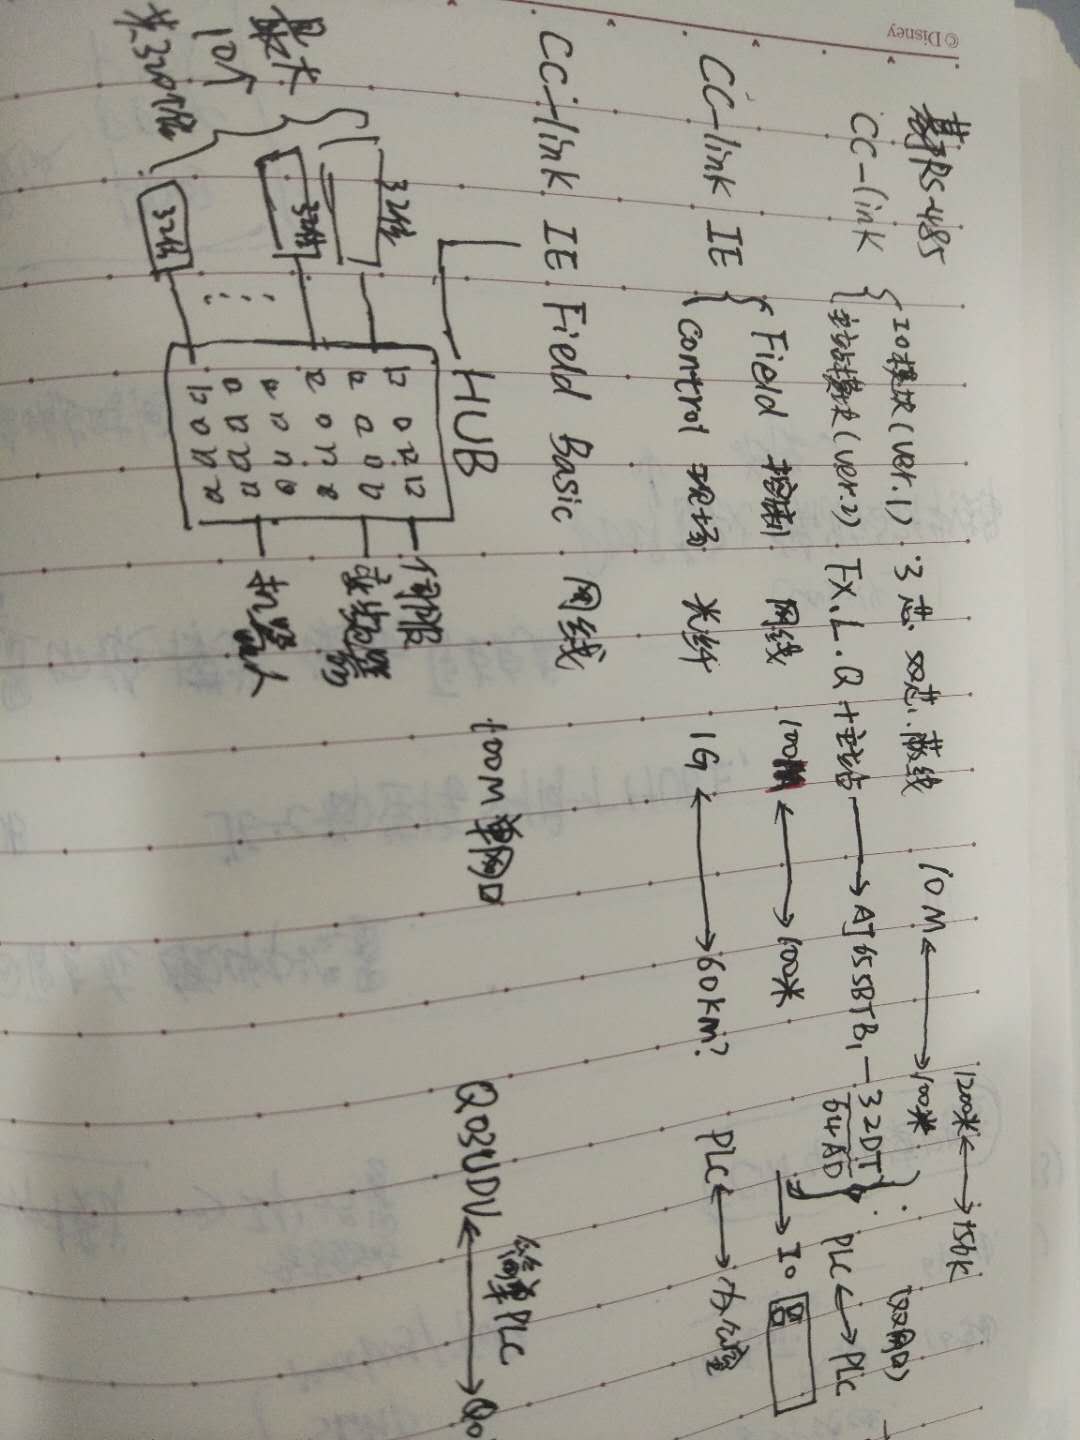 © Disney
基于RS-485
3芯.双芯.蔽线 10M ⟷ 100米
1200米 ⟷ 156K
CC-link { IO模块(ver.1)
主站模块(ver.2) FX.L.Q+主站 → AJ65SBTB1 — 32DT
64AD
PLC ⟷ PLC
(双网口)
CC-link IE { Field 控制 网线 100M ⟷ 100米
→ IO
Control 现场 光纤 1G ⟷ 60KM?
PLC ⟷ 办公室
CC-link IE Field Basic 网线
100M 单网口
Q03UDV ⟷ Q0
简单PLC
HUB
32位
32位
32位
最大
10个
伺服
变频器
机器人